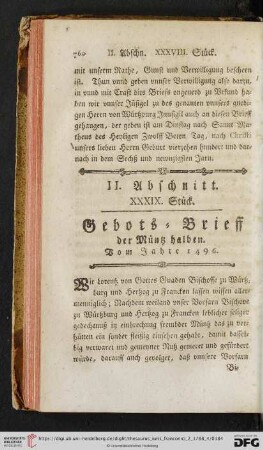 760 II. Abschn. XXXVIII. Stück.
mit unserm Rathe, Gunst und Verwilligung beschehen
ist. Thun vnnd geben vnnser Verwilligung alls darzu,
in vnnd mit Crafft diss Brieffs annuerd zu Vrkund ha-
ben wir vnnser Jnsigel zu des genanten vnnsers gnedi-
gen Herrn von Würtzpurg Jnnsigil auch an diesen Brieff
gehangen, der geben ist am Dinstag nach Sannt Mat-
theus des Heyligen Zwölff Boten Tag, nach Christi
vnnsers lieben Herrn Geburt vierzehen hundert vnd dar-
nach in dem Sechß vnd newnzigisten Jarn.
II. Abschnitt.
XXXIX. Stück.
Gebots-Brieff
der Müntz halben.
Vom Jahre 1496.
Wir Lorentz von Gottes Gnaden Bischoffe zu Würtz-
burg vnd Hertzog zu Francken lassen wissen aller-
menniglich; Nachdem weiland vnser Vorfarn Bischove
zu Würtzburg vnd Hertzog zu Francken löblicher seliger
gedechtnuß in einbrechung frembder Müntz das zu vor-
hüten ein sunder fleissig einsehen gehabt, damit dasselb-
big verwaret vnd gemeiner Nutz gemeret vnd gefürdert
würde, darauß auch gevolget, daß vnnsere Vorfarn
Bi-
https://digi.ub.uni-heidelberg.de/diglit/thesaurus_juris_franconici_2_1788_4
© Universitätsbibliothek Heidelberg
gefördert durch die
DFG